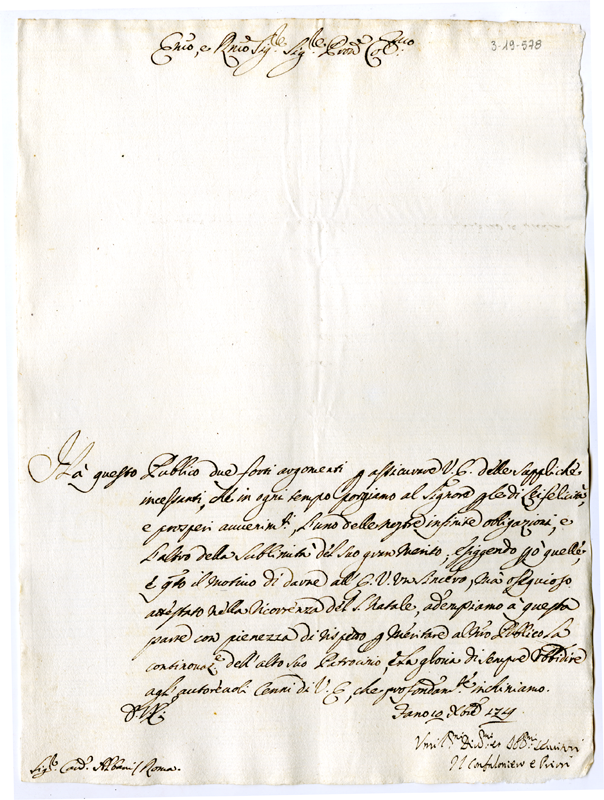 Emo, e Rmo Sigre Sigre Prone Colmo
3-19-578
Hà questo Publico due forti argomenti p assicurare V. E. delle Suppliche
incessanti, che in ogni tempo porgiamo al Signore p le di Lei felicità,
e prosperi avvenimti, l'uno delle nostre infinite obligazioni, e
l'altro della Sublimità del Suo gran Merito, esiggendo pò quelle,
e qsto il motivo di darne all' E. V. un Sincero, ma ossequioso
attestato nella ricorrenza del S. Natale, adempiamo a questa
parte con pienezza di rispetto p Meritare al Nro Publico la
continovaze dell' alto Suo Patrocinio, e la gloria di sempre Obbidire
agl' autorevoli Cenni di V. E., che profondamte inchiniamo.
D. V. E.
Fano 19 Xbre 1741
Umilmi Divmi et Obbmi Servitori
Il Confaloniero e Priori
Sigre Cardl Albani / Roma.